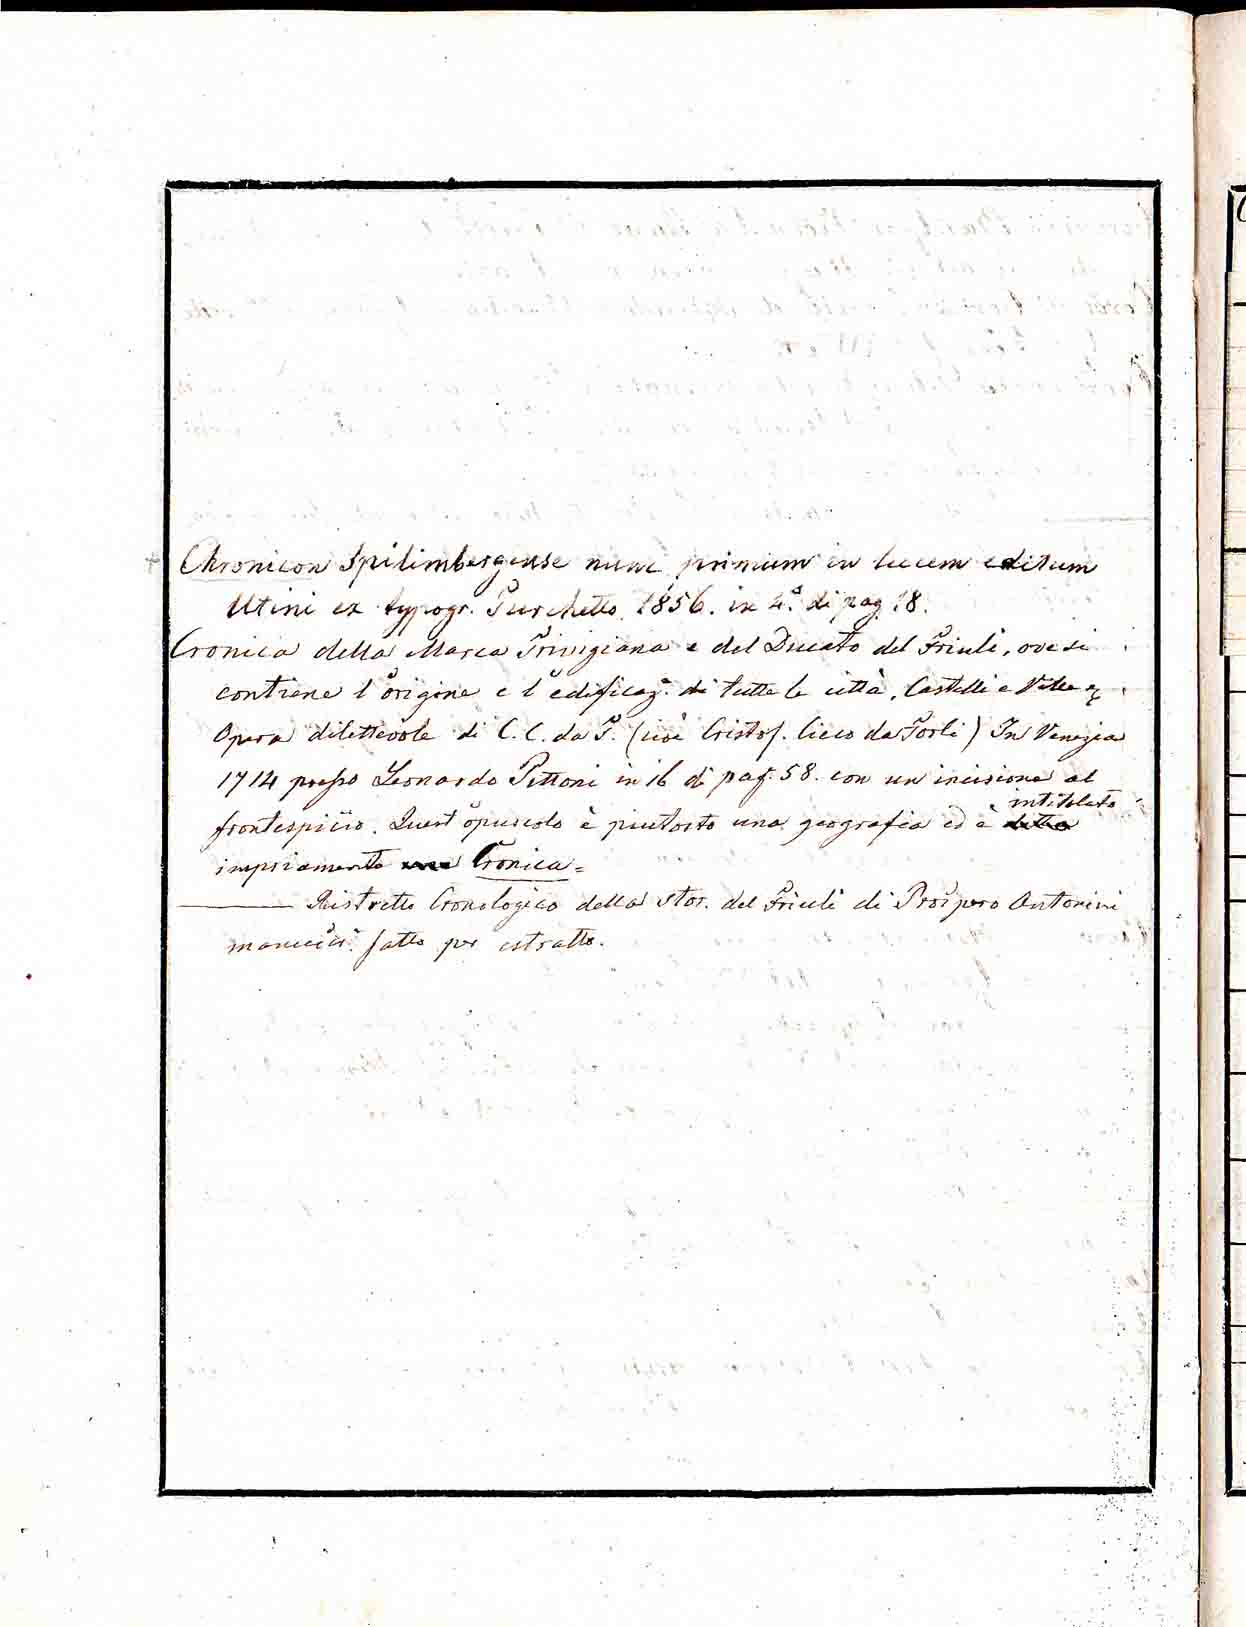 + Chronicon Spilimbergense nunc primum in lucem editum
Utini ex typogr. Turchetto 1856. in 4.° di pag. 18.
Cronica della Marca Trivigiana e del Ducato del Friuli, ove si
contiene l'origine e l'edificaz.e di tutte le città, Castelli e Ville &
Opera dilettevole di C. C. da F. (cioè Cristof. Cieco da Forlì) In Venezia
1714 presso Leonardo Pittoni in 16 di pag. 58. con un incisione al
frontespizio. Quest'opuscolo è piutosto una geografia ed è intitolato
impriamente Cronica =
——— Ristretto Cronologico della stor. del Friuli di Prospero Antonini
fatto per estratto.